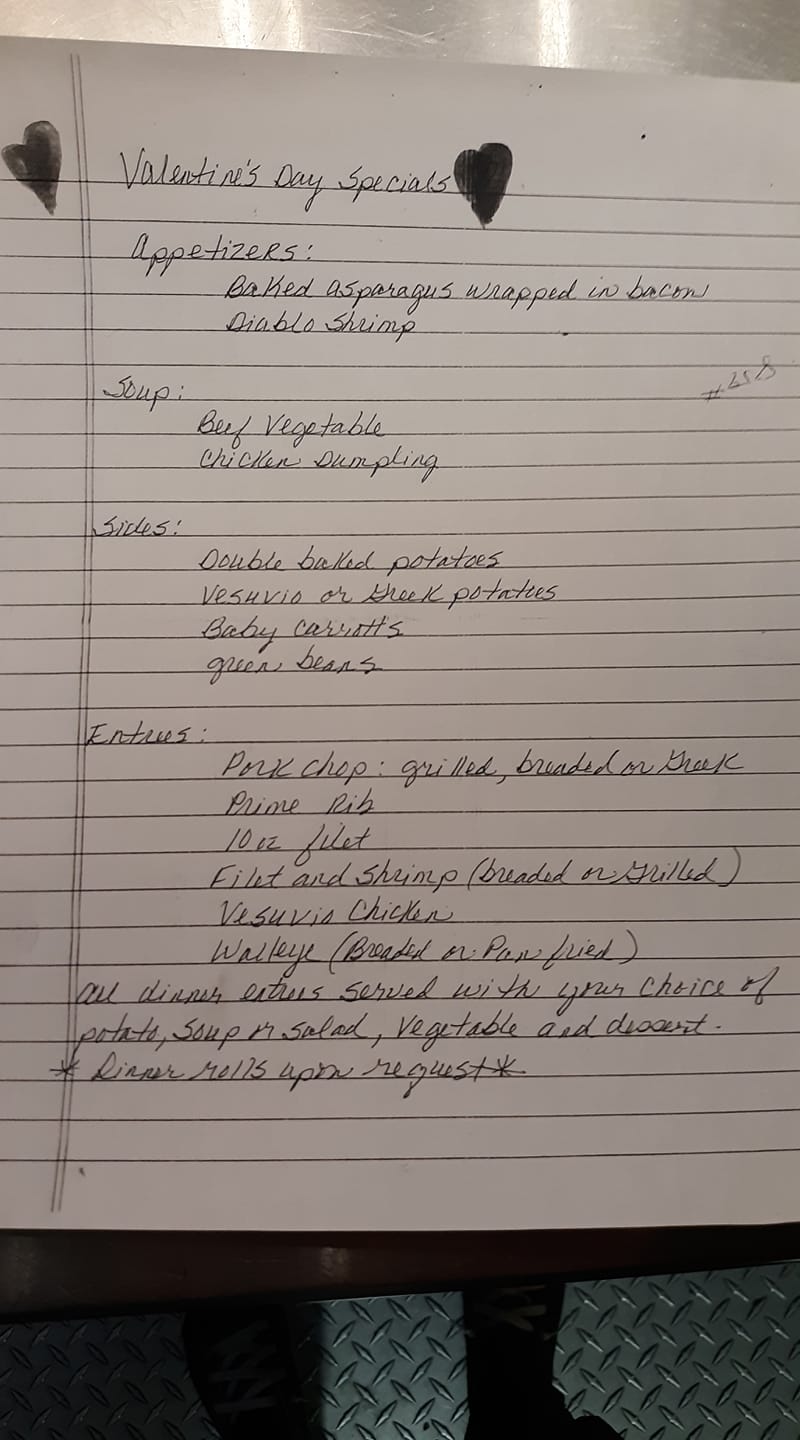 Valentine's Day Specials
Appetizers:
Baked asparagus wrapped in bacon
Diablo Shrimp
Soup:
Beef Vegetable
Chicken Dumpling
Sides:
Double baked potatoes
Vesuvio or Greek potatoes
Baby carrotts
green beans
Entrees:
Pork chop: grilled, breaded or Greek
Prime Rib
10 oz filet
Filet and Shrimp (breaded or Grilled)
Vesuvio Chicken
Walleye (Breaded or Pan fried)
all dinner entrees served with your choice of
potato, soup or salad, vegetable and dessert.
* Dinner rolls upon request *